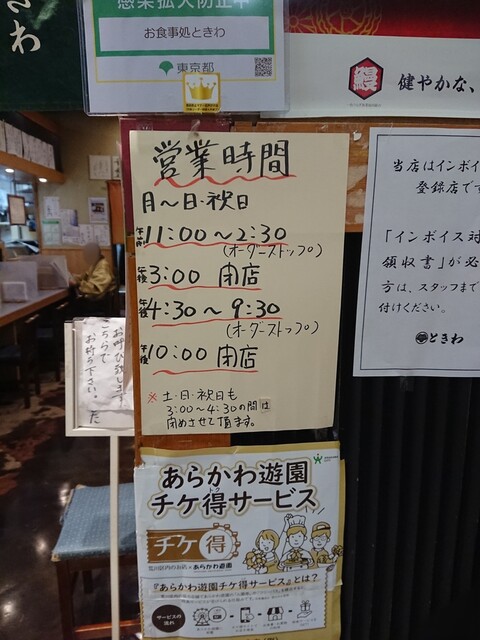 きわ
感染拡大防止中
お食事処ときわ
東京都
鰻
健やかな、
営業時間
月～日・祝日
午前11:00～2:30
(オーダーストップ)
午後3:00 閉店
午後4:30～9:30
(オーダーストップ)
午後10:00 閉店
※土・日・祝日も
3:00～4:30の間は
閉めさせて頂ます。
当店はインボイ
登録店です
「インボイス対
領収書」が必
方は、スタッフまで
付けください。
ときわ
お呼び致します
こちらで
お待ち下さい。
あらかわ遊園
チケ得サービス
トク
チケ得
荒川区内のお店×あらかわ遊園
『あらかわ遊園チケ得サービス』とは?
サービスの
流れ